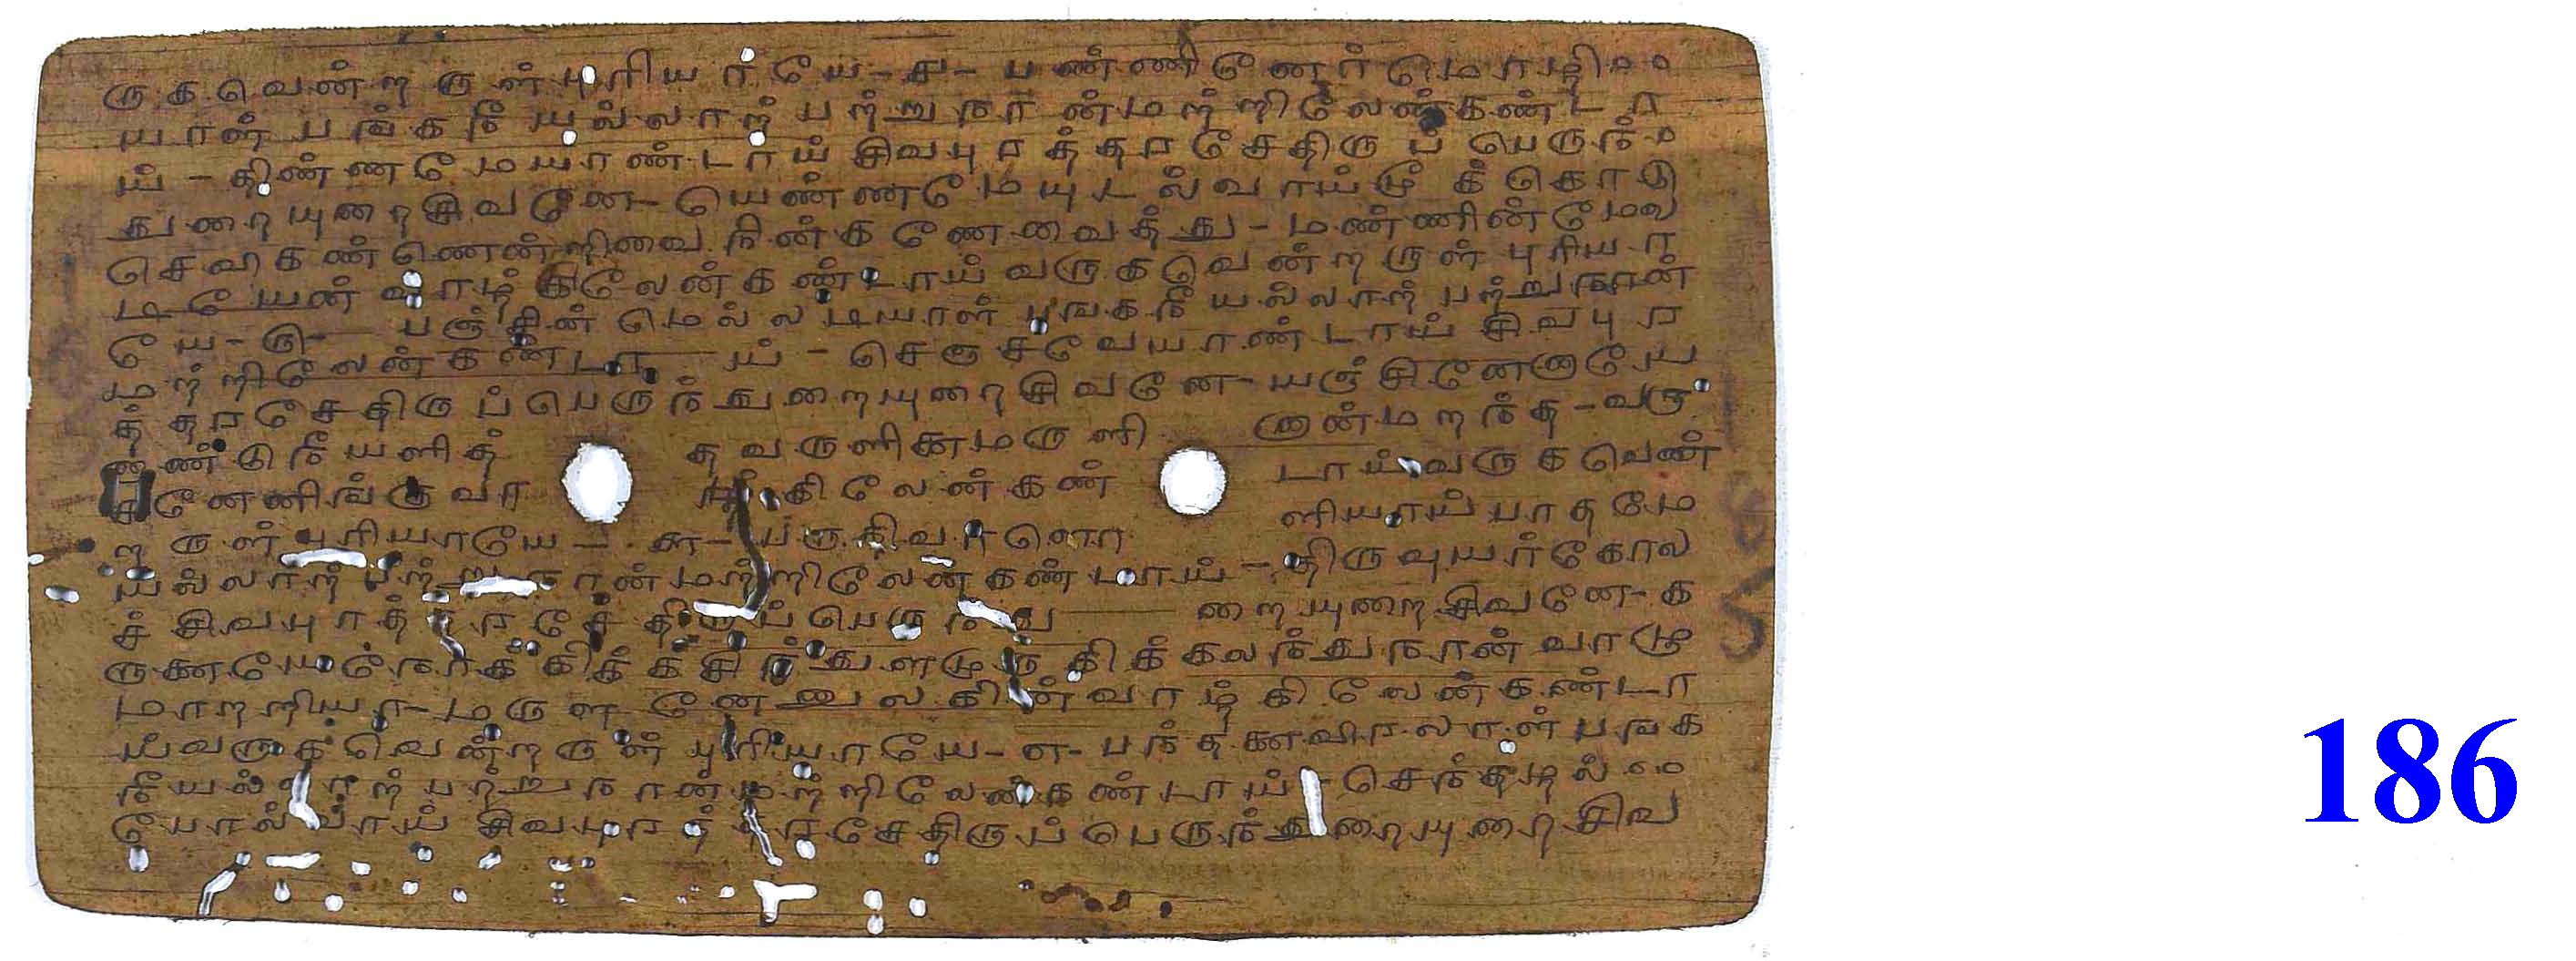 ருகவென்றருள்புரியாயே-ச-பண்ணினேர்மொழி
யாள்பங்கநீயல்லாற்பற்றுநான்மற்றிலேன்கண்டா
ய்-திண்ணமேயாண்டாய்சிவபுரத்தரசேதிருப்பெருந்
துறையுறைசிவனே-யெண்ணமேயுடல்வாய்மூக்கொடு
செவிகண்ணென்றிவைநின்கணேவைத்து-மண்ணின்மேல
டியேன்வாழ்கிலேன்கண்டாய்வருகவென்றருள்புரியா
யே-ரு-பஞ்சின்மெல்லடியாள்பங்கநீயல்லாற்பற்றுநான்
மற்றிலேன்கண்டாய்-செஞ்சவேயாண்டாய்சிவபுர
த்தரசேதிருப்பெருந்துறையுறைசிவனே-யஞ்சினேனாயே
னாண்டுநீயளித்தவருளினமருளினான்மறந்த-வரு
சனேனிங்குவாழ்கிலேன்கண்டாய்வருகவென்
றருள்புரியாயே-சா-பருதிவாளொளியாய்பாதமே
யல்லாற்பற்றுநான்மற்றிலேன்கண்டாய்-திருவுயர்கோல
ச்சிவபுரத்தரசேதிருப்பெருந்துறையுறைசிவனே-க
ருணையேநோக்கிக்கசிந்துளமுருகிக்கலந்துநான்வாழு
மாறறியா-மருளனேனுலகின்வாழ்கிலேன்கண்டா
ய்வருகவென்றருள்புரியாயே-எ-பந்தணைவிரலாள்பங்க
நீயல்லாற்பற்றுநான்மற்றிலேன்கண்டாய்-செந்தழல்
போல்வாய்சிவபுரத்தரசேதிருப்பெருந்துறையுறைசிவ
186